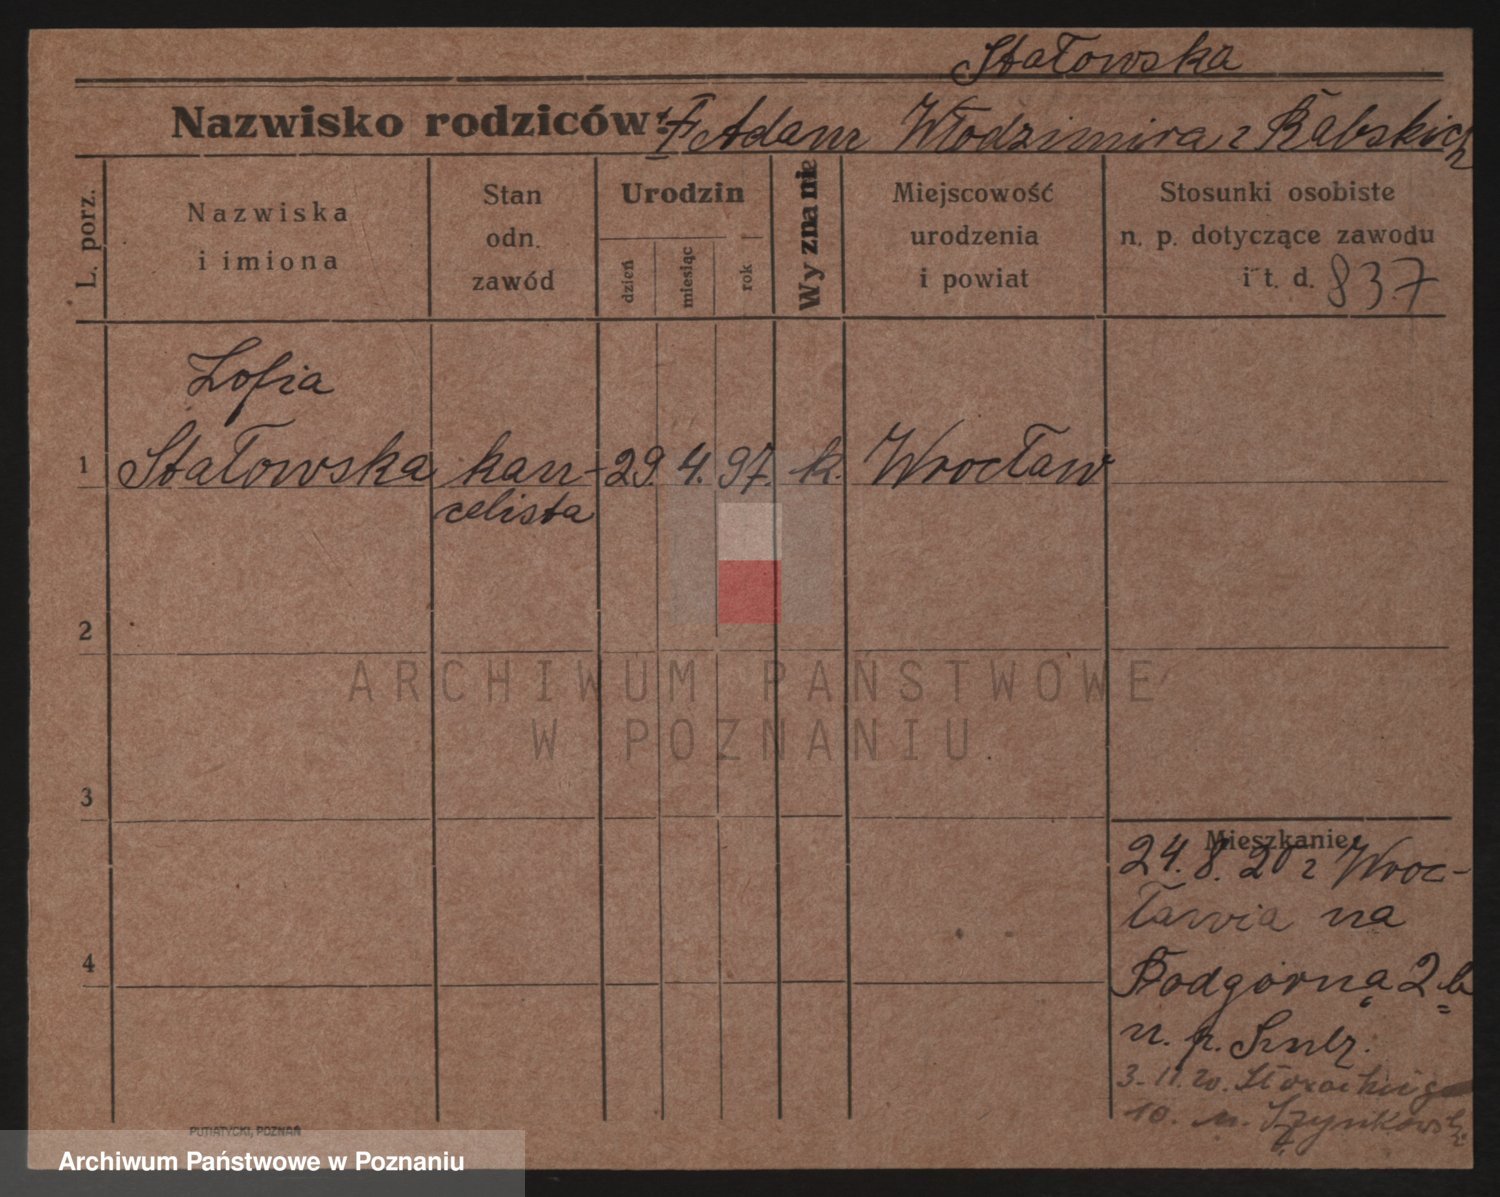 Stałowska
Nazwisko rodziców: Adam Włodzimira z Rabskich
L. porz.
Nazwiska
i imiona
Stan
odn.
zawód
Urodzin
dzień
miesiąc
rok
Wyznanie
Miejscowość
urodzenia
i powiat
Stosunki osobiste
n. p. dotyczące zawodu
i t. d. 837
Zofia
1 Stałowska kan- 29. 4. 97. k. Wrocław
celista
2
ARCHIWUM PAŃSTWOWE
W POZNANIU
3
Mieszkanie
24. 8. 20 z Wroc-
ławia na
4
Podgórną 2 b
u. p. Szulz.
3. 11. 20.
10. u.
PUTIATYCKI, POZNAŃ
Archiwum Państwowe w Poznaniu